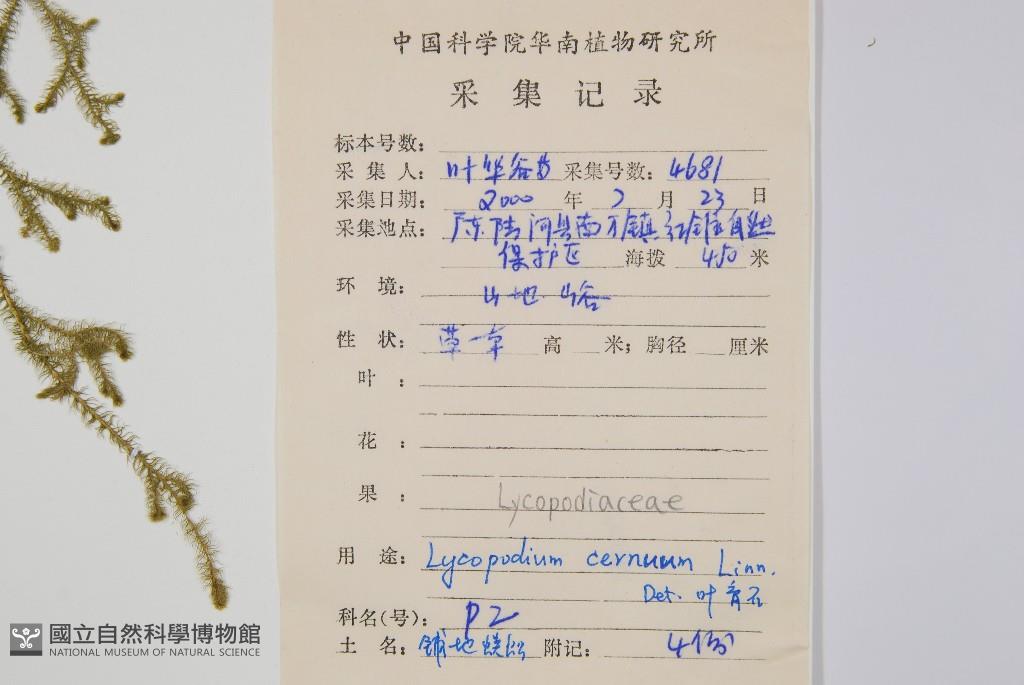 中国科学院华南植物研究所
采集记录
标本号数：
采集人：叶华谷 采集号数：4681
采集日期：2000 年 7 月 23 日
采集地点：广东陆河县南万镇红锥自然
保护区 海拨 450 米
环境：山地 山谷
性状：草本 高 米；胸径 厘米
叶：
花：
果：
Lycopodiaceae
用途：Lycopodium cernuum Linn.
Det. 叶育石
科名（号）：P2
土名：铺地蜈蚣 附记：4份
國立自然科學博物館
NATIONAL MUSEUM OF NATURAL SCIENCE